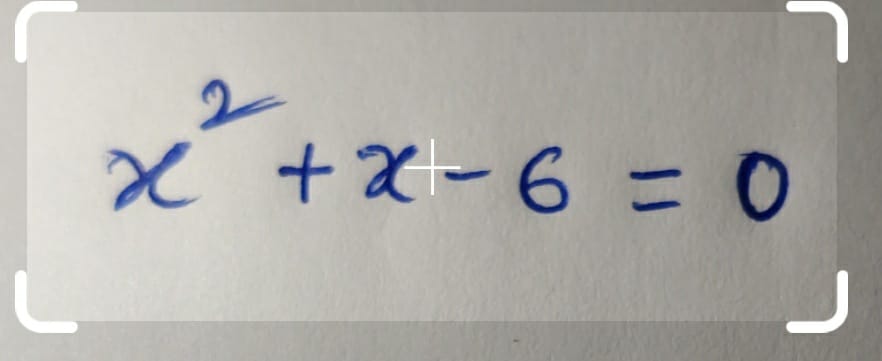 x² + x - 6 = 0